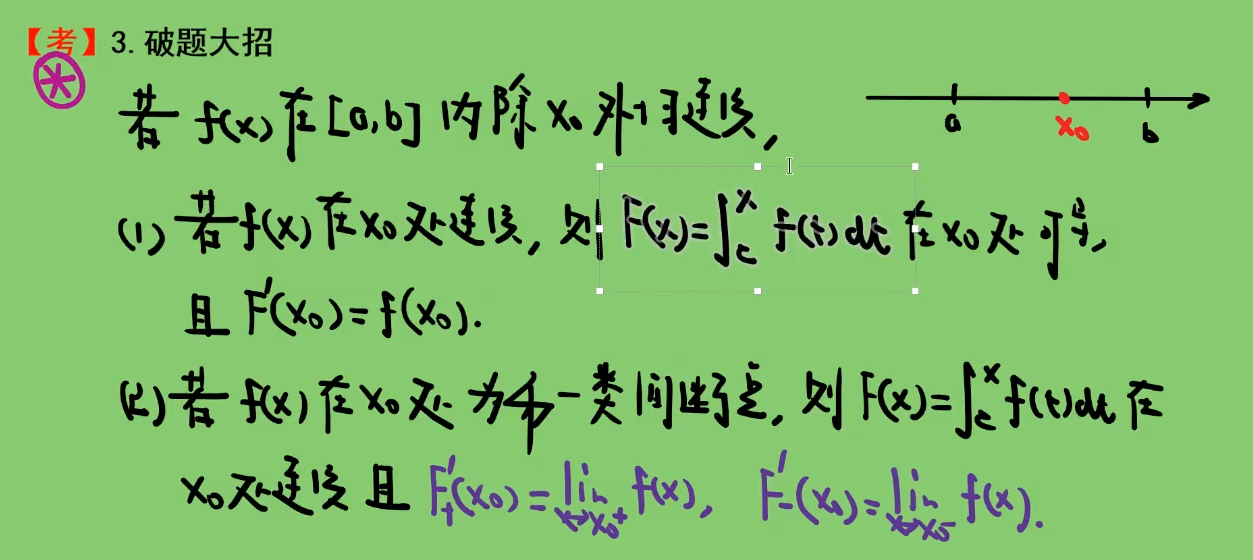 【考】3. 破题大招
若 f(x) 在 [a,b] 内除 x₀ 外均连续,
a x₀ b
(1) 若 f(x) 在 x₀ 处连续, 则 F(x)=∫_c^x f(t)dt 在 x₀ 处可导,
且 F'(x₀)=f(x₀).
(2) 若 f(x) 在 x₀ 处为第一类间断点, 则 F(x)=∫_c^x f(t)dt 在
x₀ 处连续且 F'₊(x₀)=lim_{x→x₀⁺} f(x), F'₋(x₀)=lim_{x→x₀⁻} f(x).